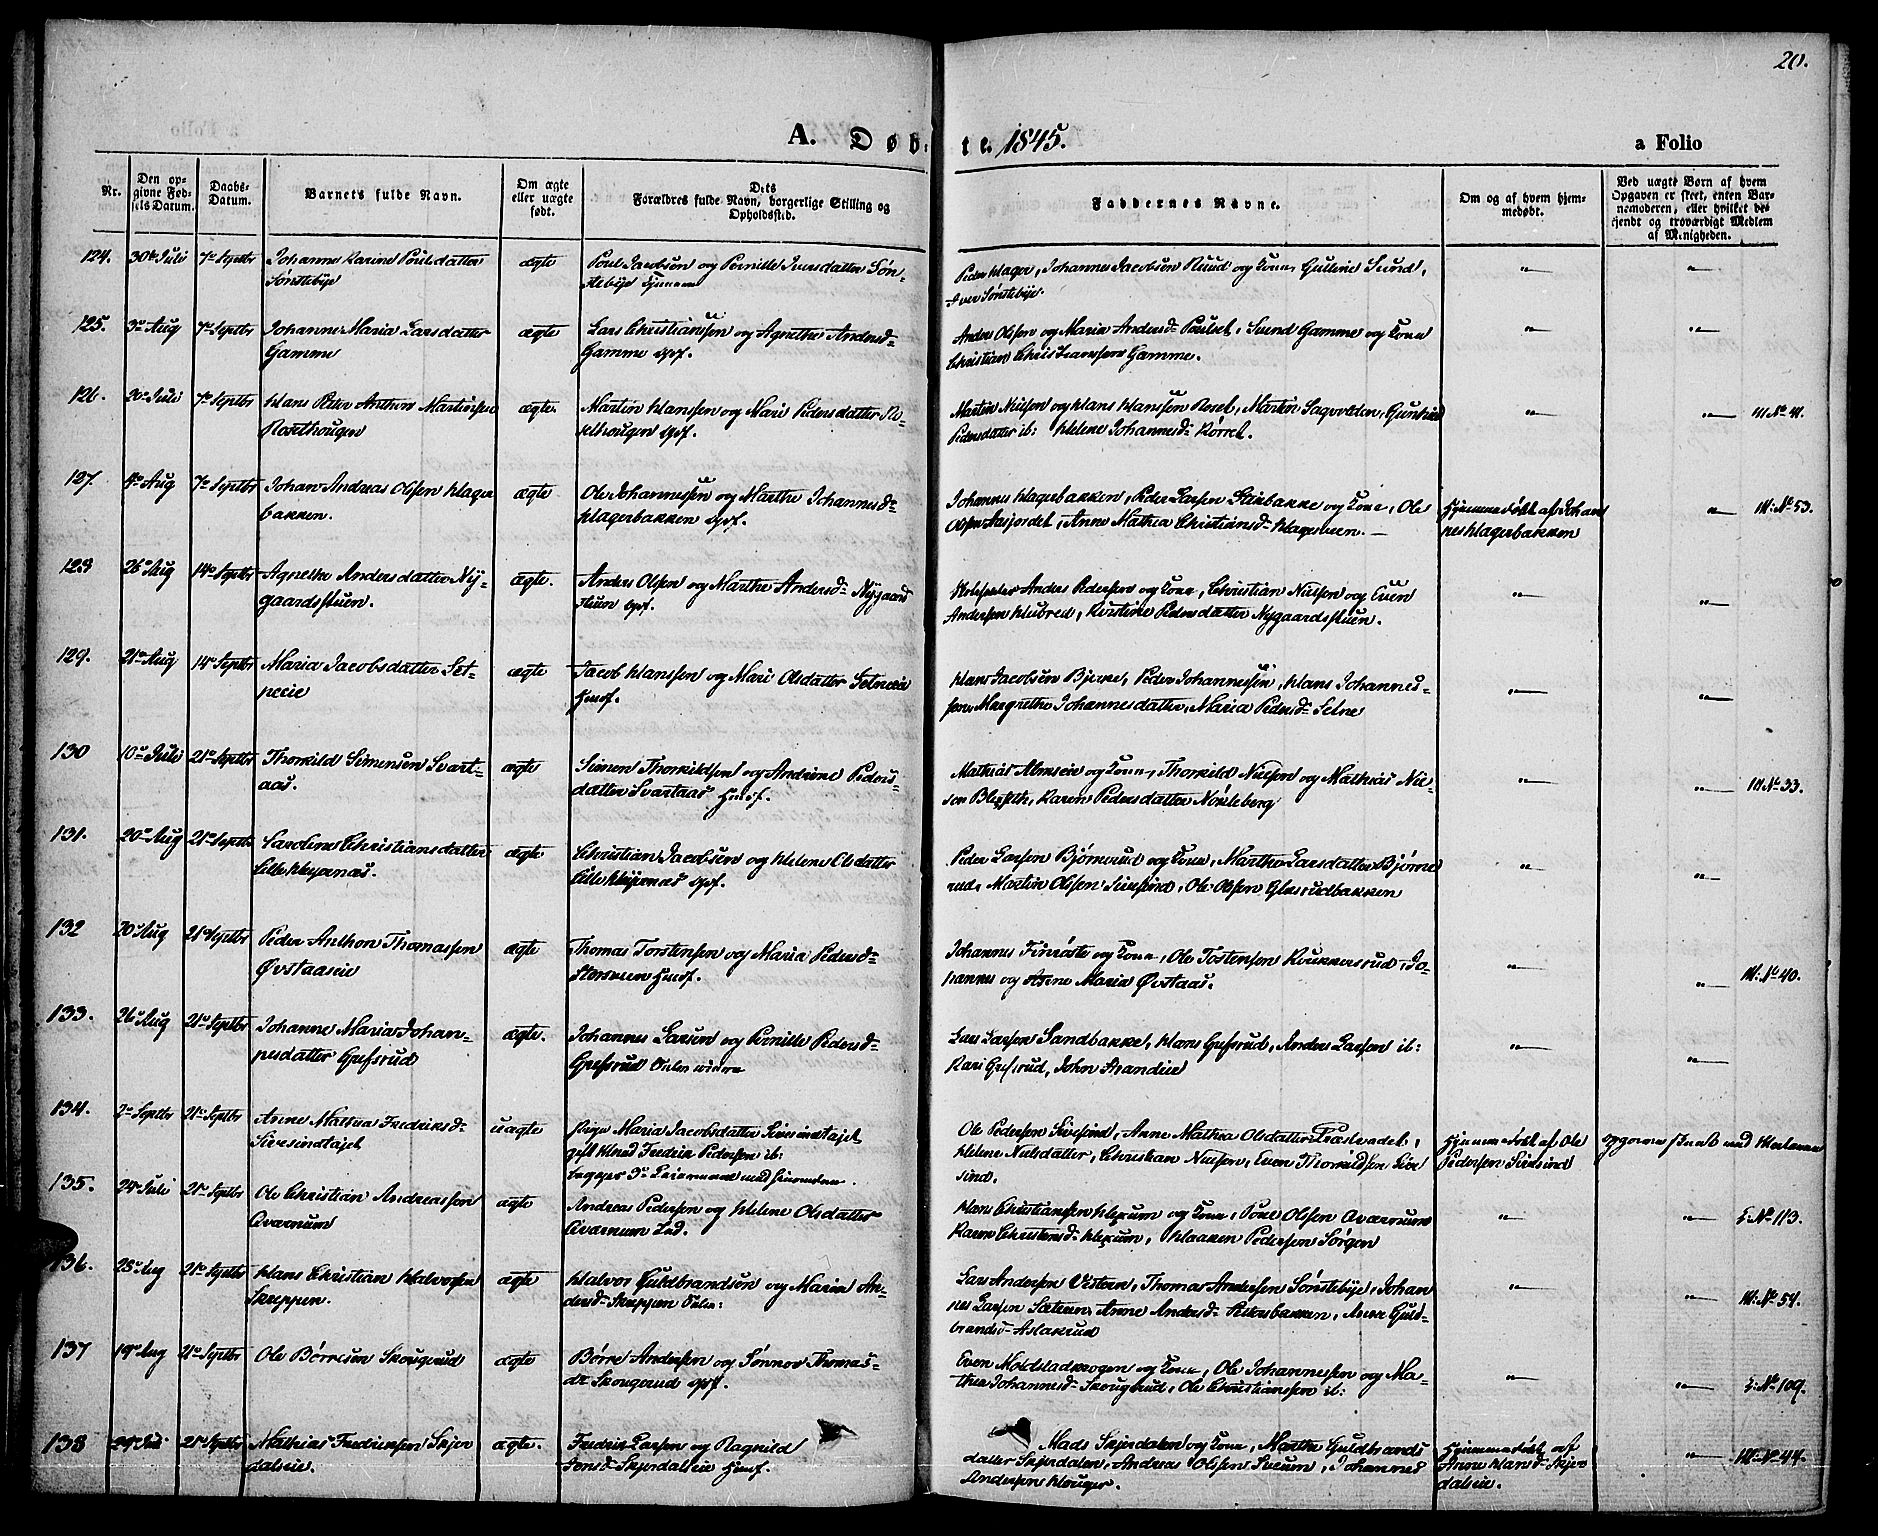 20.
A. Døb- te. 1845. a Folio
Nr.
Den opgivne Fødsels Datum.
Daabs-Datum.
Barnets fulde Navn.
Om ægte eller uægte født.
Dets Forældres fulde Navn, borgerlige Stilling og Opholdssted.
Faddernes Navne.
Om og af hvem hjemmedøbt.
Ved uægte Børn af hvem Opgaven er skeet, enten Barnemoderen, eller hvilket bekjendt og troværdigt Medlem af Menigheden.
124. 30te Juli 7de Septbr Johanne Karine Poulsdatter ægte Poul Jacobsen og Pernille Iversdatter Søn-
Sønstebye stebye
Peder Klager, Johannes Jacobsen Ruud og Kone, Guline Sund,
Iver Sønstebye.
125. 3de Aug 7de Septbr Johanne Maria Larsdatter ægte Lars Christianssen og Agnethe Andersd-
Gamme Gamme
Anders Olssen og Maria Andersd- Poulset, Svend Gamme og Kone
Christian Christianssen Gamme.
126. 20de Juli 7de Septbr Hans Peter Anthon Martinsen ægte. Martin Hanssen og Mari Pedersdatter Ro-
Roselhougen selhougen
Martin Nilsen og Hans Hanssen Rosel, Martin Sagvolden,
Pedersdatter ib: Helene Johannesd- Kørrel. M No 41.
127. 4de Aug 7de Septbr Johan Andreas Olssen Klager ægte Ole Johannessen og Marthe Johannesd-
bakken. Klagerbakken
Johannes Klagerbakken, Peder Larsen Steinbakke og Kone, Ole
Olssen Aasjordet, Anne Mathea Christiansd-
Hjemmedøbt af Johan
nes Klagerbakken M: No 53.
128 26de Aug 14de Septbr Agnethe Andersdatter Ny- ægte. Anders Olssen og Marthe Andersd- Nygaard
gaardsstuen. stuen
Anders Pedersen og Kone, Christian Nilsen og Even
Andersen Klubred, Kirstine Pedersdatter Nygaardsstuen.
129. 21de Aug 14de Septbr Maria Jacobsdatter Set- ægte Jacob Hanssen og Mari Olsdatter Setneeie
neeie Husf.
Hans Jacobsen Bjerke, Peder Johannessen, Hans Johannes-
sen, Margrethe Johannesdatter, Maria Pedersd- Setne
130 10de Juli 21de Septbr Thorkild Simensen Svart- ægte Simen Thorkildsen og Andrine Peders
aas. datter Svartaas Husf.
Mathias Almseie og Kone, Thorkild Nielsen og Mathias Niel-
sen Karen Pedersdatter Nordleberg M No 33.
131. 20de Aug 21de Septbr Caroline Christiansdatter ægte Christian Jacobsen og Helene Olsdatter
Lille Klejvenæs. Lille Klejvenæs
Peder Larsen Bjørnerud og Kone, Marthe Larsdatter Bjørne
rud, Martin Olssen Sivesind, Ole Olssen Glæsrudbakken
132 20de Aug 21de Septbr Peder Anthon Thomassen ægte Thomas Torstensen og Maria Pedersd-
Øvstaaseie Husf.
Johannes Finrøste og Kone, Ole Tostensen Knukkersrud, Jo-
hannes og Anne Maria Øvstaas. M: No 40.
133. 26de Aug 21de Septbr Johanne Maria Johan- ægte. Johannes Larsen og Pernille Pedersd-
nesdatter Grefsrud Grefsrud
Lars Larsen Sandbakke, Hans Grefsrud, Anders Larsen ib:
Kari Grefsrud, John
134. 2de Septbr 21de Septbr Anne Mathea Fredriksd- uægte Pige Maria Jacobsdatter Sivesindtajet
Sivesindtajet gift Fredrik Pedersen ib:
Ole Pedersen Sivesind, Anne Mathea Olsdatter
Helene Nielsdatter, Christian Nielsen, Even Thorkildsen Sive
sind.
Hjemmedøbt af Ole
Pedersen Sivesind
135. 24de Juli 21de Septbr Ole Christian Andreassen ægte Andreas Pedersen og Helene Olsdatter
Qværnum Qværnum Ind.
Hans Christianssen Hexum og Kone, Poul Olssen Qværnum
Karen Christensd- Hexum, Haaken Pedersen Sørgen E: No 113.
136. 25de Aug 21de Septbr Hans Christian Halvorsen ægte Halvor Guldbrandsen og Maria An-
Skreppen. dersd- Skreppen
Lars Andersen Vestern, Thomas Andersen Sønstebye, Johan
nes Larsen Sætrum, Anne Andersd- Petersbakken, Anne Guld-
brandsd- Aslakrud M: No 54.
137 19de Aug 21de Septbr Ole Børresen Skougerud ægte Børre Andersen og Sønnov Thomas-
dr Skougerud
Even Moldstadkrogen og Kone, Ole Johannessen og Ma-
thea Johannesd- Skougerud, Ole Christianssen ib: E: No 109.
138 24de Juli 21de Septbr Mathias Fredriksen Skjer ægte. Fredrik Larsen og Ragnild
dalseie. Jonsd- Skjerdalseie Husf.
Mads Skjerdalen og Kone, Marthe Guldbrands
datter Skjerdalen, Andreas Olssen Sveum, Johannes
Andersen Klouger.
Hjemmedøbt af
Anne Hansd- Skjer
dalseie. M: No 44.